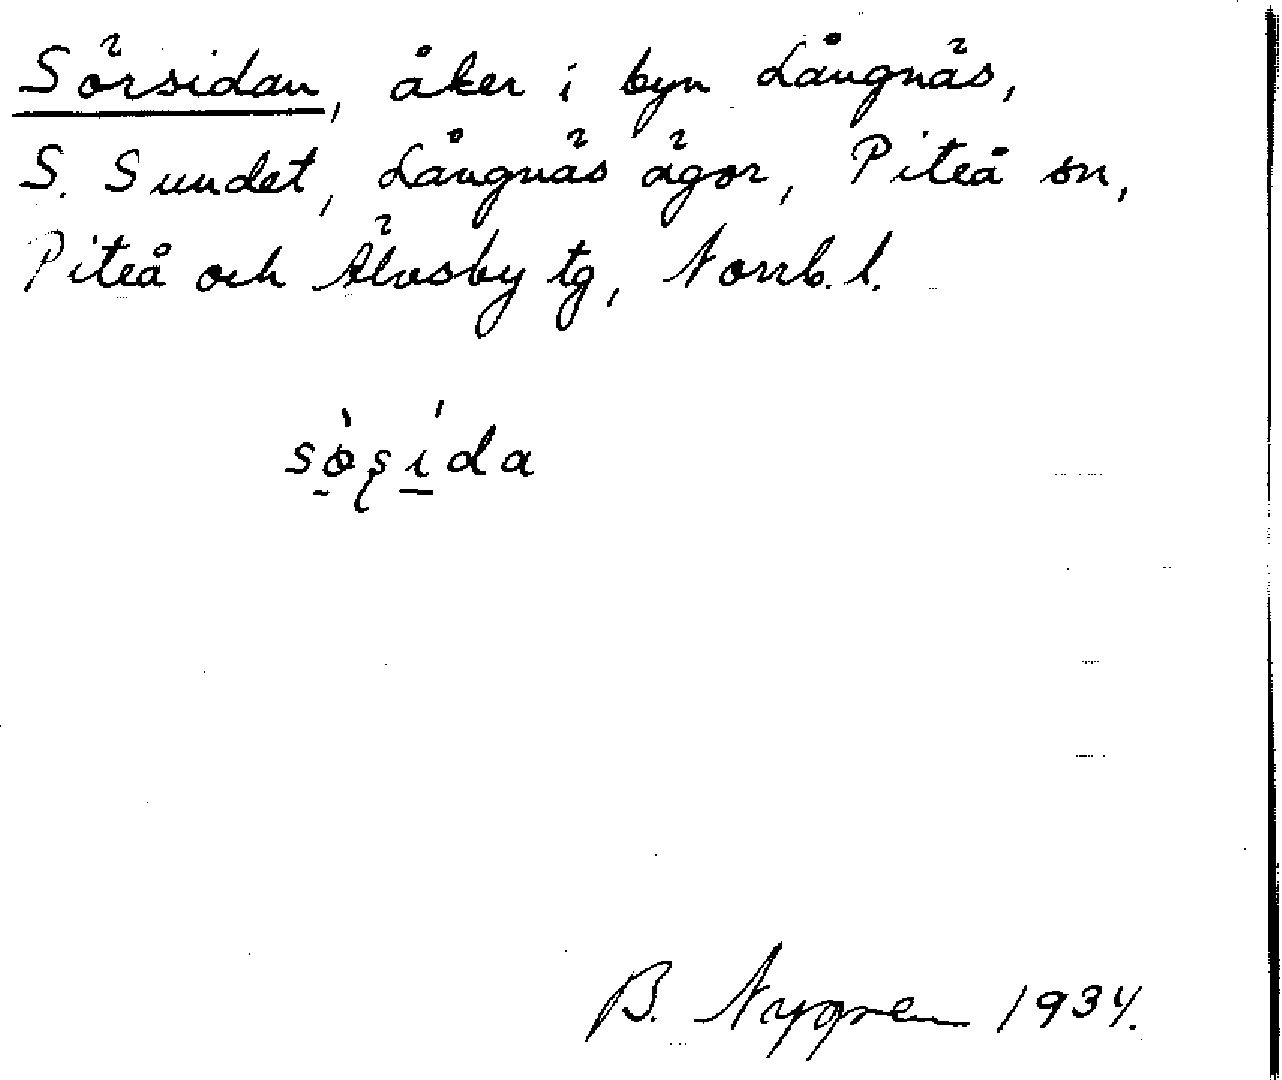 Sörsidan, åker i byn Långnäs,
S. Sundet, Långnäs ägor, Piteå sn,
Piteå och Älvsby tg, Norrb. l.
sø̀ʂída
B. Nygren 1934.